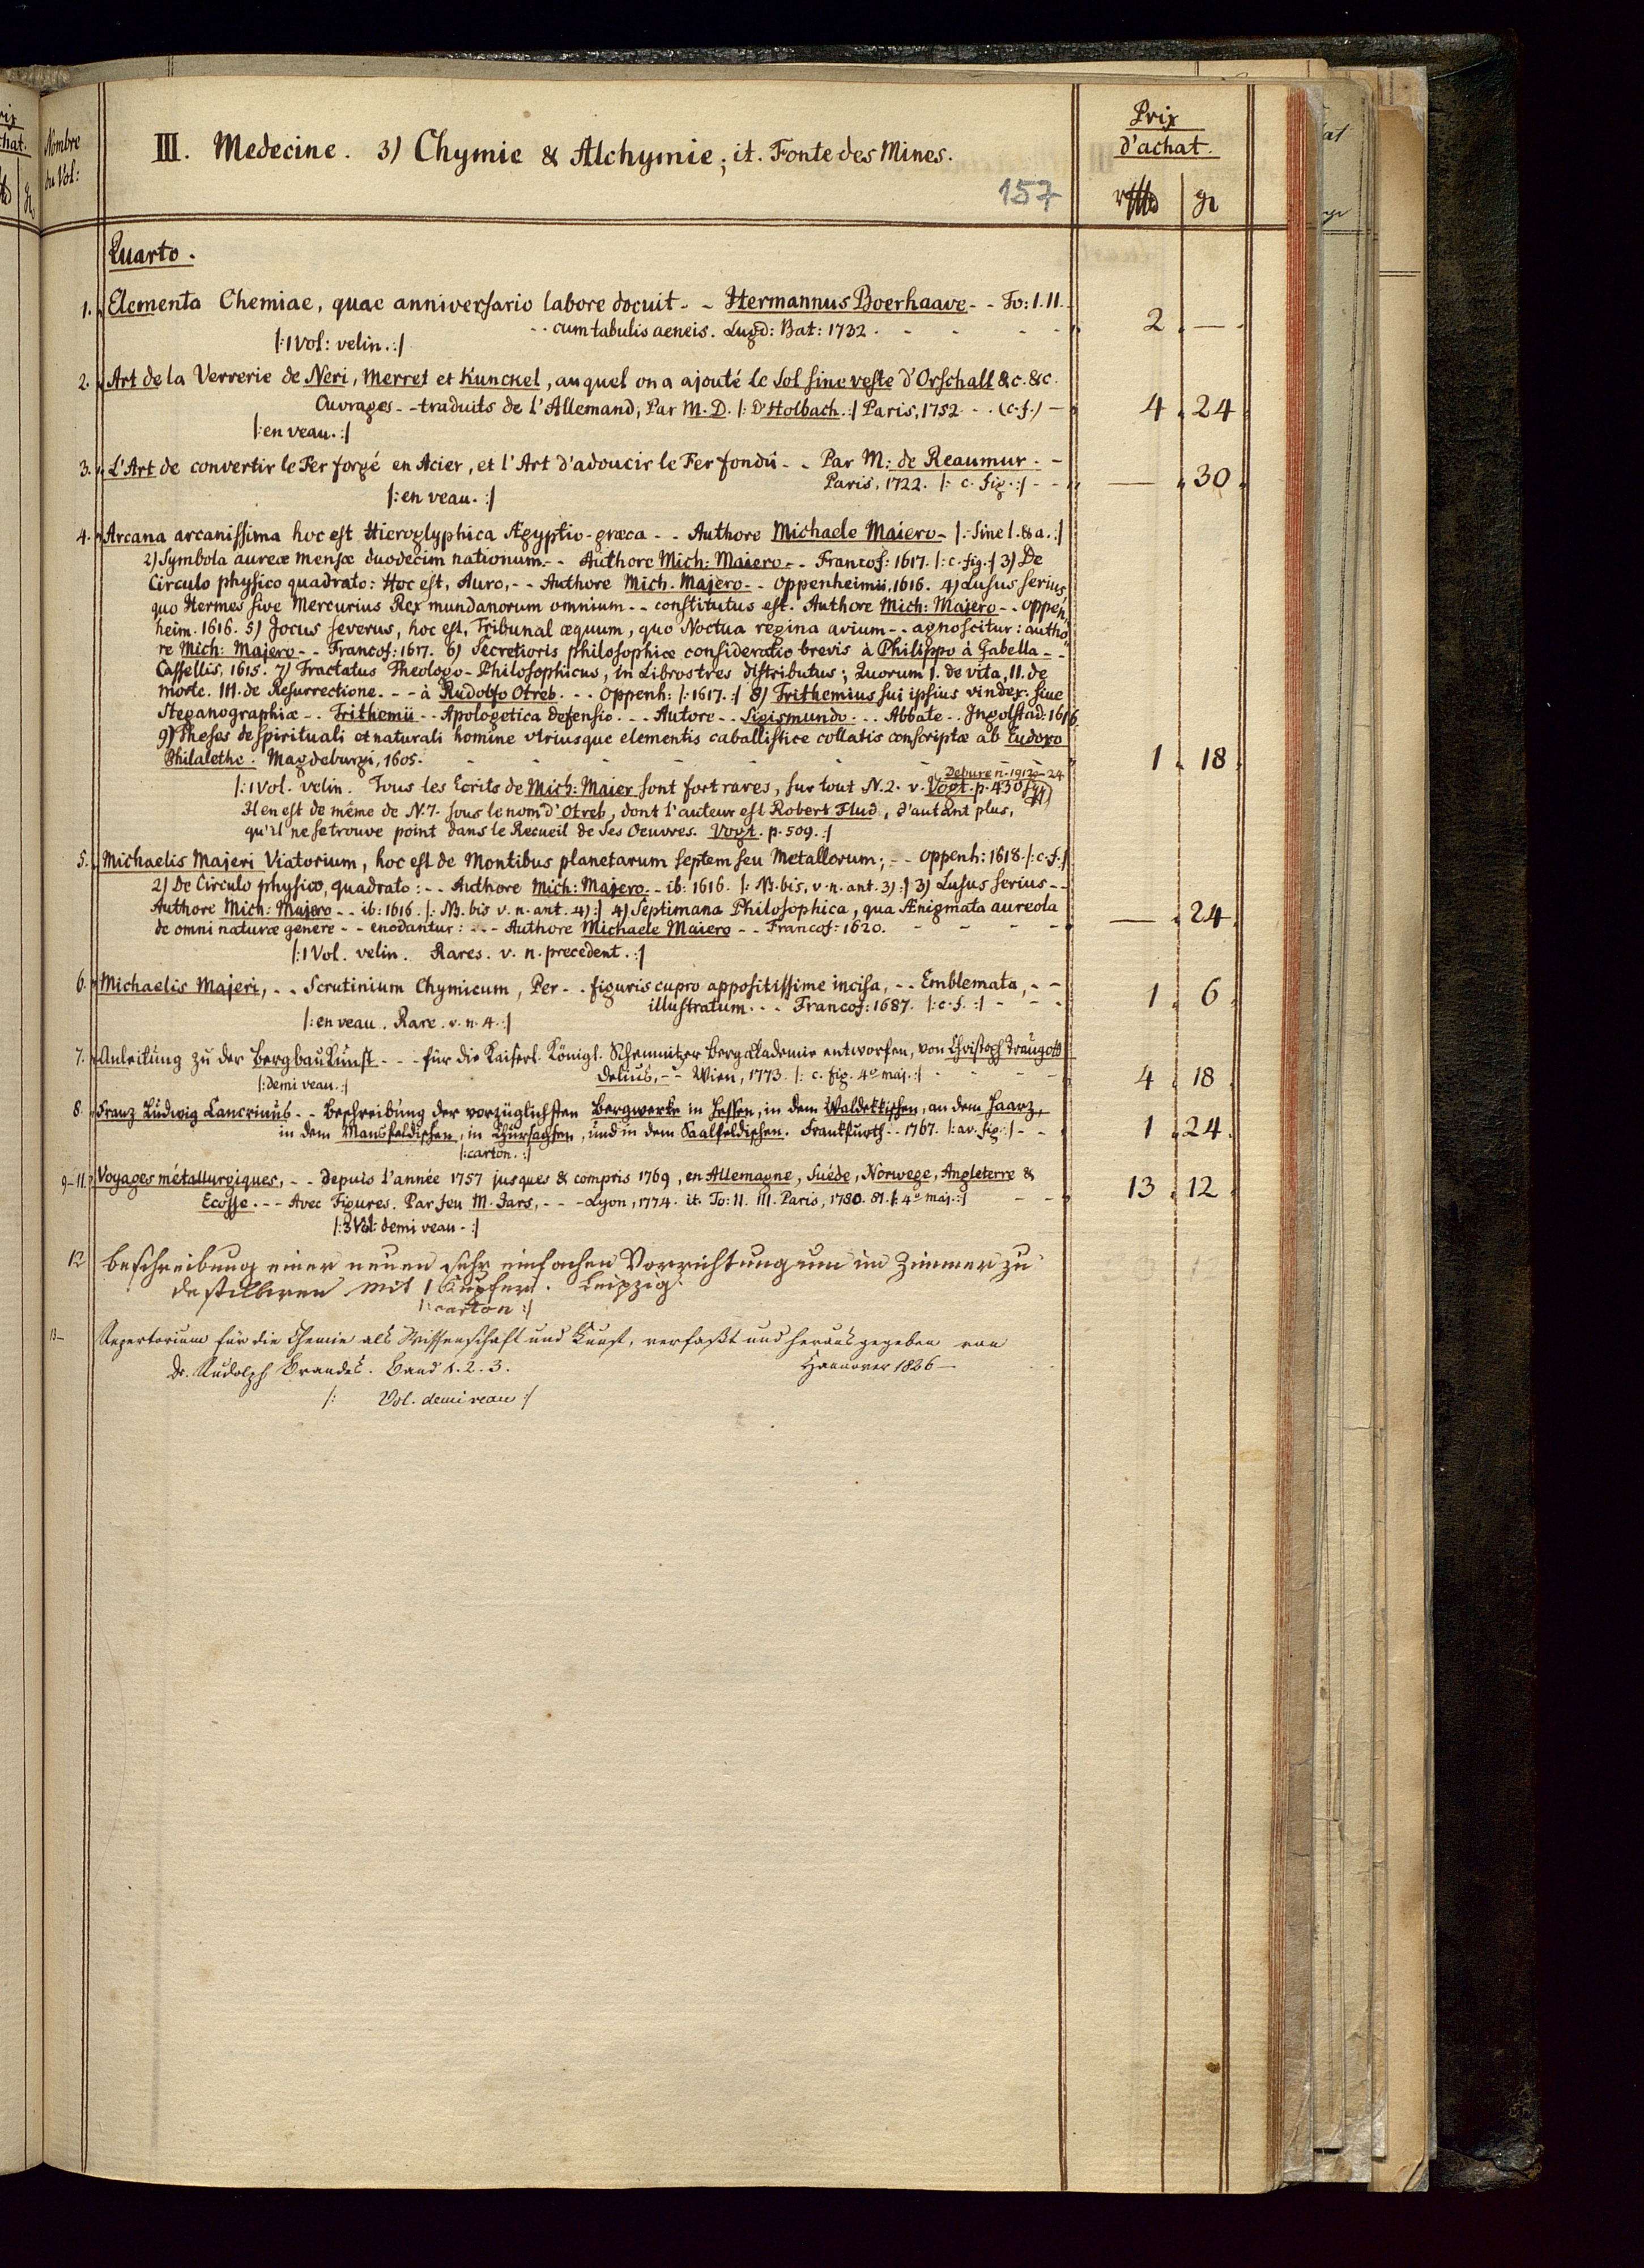 Nombre
du Vol:
III. Medecine. 3) Chymie & Alchymie; it. Fonte des Mines.
157
Prix
d'achat.
gr
Quarto.
1. Elementa Chemiae, quae anniversario labore docuit - - Hermannus Boerhaave - - To: I. II.
- - cum tabulis aeneis. Lugd: Bat: 1732. 2 —
/: 1 Vol: velin. :/
2. Art de la Verrerie de Neri, Merret et Kunckel, auquel on a ajouté le Sol sine veste d'Orschall &c. &c.
Ouvrages - - traduits de l'Allemand, Par M. D. /: D'Holbach. :/ Paris, 1752 - - (c. f.) — 4 24
/: en veau. :/
3. L'Art de convertir le Fer forgé en Acier, et l'Art d'adoucir le Fer fondu - - Par M: de Reaumur. -
Paris, 1722. /: c. fig. :/ - - — 30
/: en veau. :/
4. Arcana arcanissima hoc est Hieroglyphica Ægyptio-græca - - Authore Michaele Maiero - /: Sine l. & a. :/
2) Symbola aureæ mensæ duodecim nationum. - - Authore Mich: Maiero - - Francof: 1617. /: c. fig. :/ 3) De
Circulo physico quadrato: Hoc est, Auro, - - Authore Mich. Majero - - Oppenheimii, 1616. 4) Lusus serius,
quo Hermes sive Mercurius Rex mundanorum omnium - - constitutus est. Authore Mich: Majero - - Oppen,,
heim. 1616. 5) Jocus severus, hoc est, Tribunal æquum, quo Noctua regina avium - - agnoscitur: autho,,
re Mich: Majero - - Francof: 1617. 6) Secretioris philosophiæ consideratio brevis à Philippo à Gabella - -
Cassellis, 1615. 7) Tractatus Theologo-Philosophicus, in Libros tres distributus; Quorum I. de vita, II. de
morte. III. de Resurrectione. - - à Rudolfo Otreb. - - Oppenh: /: 1617. :/ 8) Trithemius sui ipsius vindex: sive
Steganographiæ - - Trithemii - - Apologetica defensio. - - Autore - - Sigismundo - - Abbate - - Ingolstad: 1616
9) Theses de spirituali et naturali homine utriusque elementis caballistice collatis conscriptæ ab Eudoxo
Philalethe. Magdeburgi, 1605. 1 18
Debure n. 1912 - 24
/: 1 Vol. velin. Tous les Ecrits de Mich: Maier sont fort rares, sur tout N. 2. v. Vogt. p. 430 sqq
Il en est de même de N. 7. sous le nom d'Otreb, dont l'auteur est Robert Flud, d'autant plus,
qu'il ne se trouve point dans le Recueil de ses Oeuvres. Vogt. p. 509. :/
5. Michaelis Majeri Viatorium, hoc est de Montibus planetarum septem seu Metallorum; - - Oppenh: 1618. /: c. f. :/
2) De Circulo physico, quadrato: - - Authore Mich: Majero. - ib: 1616. /: NB. bis, v. n. ant. 3) :/ 3) Lusus serius - -
Authore Mich: Majero - - ib: 1616. /: NB. bis v. n. ant. 4) :/ 4) Septimana Philosophica, qua Ænigmata aureola
de omni naturæ genere - - enodantur: - - - Authore Michaele Maiero - - Francof: 1620. — 24
/: 1 Vol. velin. Rares. v. n. precedent. :/
6. Michaelis Majeri, - - Scrutinium Chymicum, Per - - figuris cupro appositissime incisa, - - Emblemata, - -
illustratum. - - Francof: 1687. /: c. f. :/ 1 6
/: en veau. Rare. v. n. 4. :/
7. Anleitung zu der Bergbaukunst - - - für die Kaiserl. Königl. Schemnitzer Bergakademie entworfen, von Christoph Traugott
Delius, - - Wien, 1773. /: c. fig. 4º maj. :/ 4 18
/: demi veau. :/
8. Franz Ludwig Cancrinus - - Beschreibung der vorzüglichsten Bergwerke in Hessen, in dem Waldekkischen, an dem Haarz,
in dem Mansfeldischen, in Chursachsen, und in dem Saalfeldischen. Frankfurth - - 1767. /: av. fig. :/ - - 1 24
/: carton. :/
9-11. Voyages métallurgiques, - - depuis l'année 1757 jusques & compris 1769, en Allemagne, Suéde, Norwege, Angleterre &
Ecosse. - - Avec Figures. Par feu M. Jars, - - - Lyon, 1774. it. To: II. III. Paris, 1780. 81. /: 4º maj. :/ 13 12
/: 3 Vol: demi veau. :/
12 Beschreibung einer neuen sehr einfachen Vorrichtung um im Zimmer zu
destilliren mit 1 Kupfer. Leipzig.
/: carton :/
13- Repertorium für die Chemie als Wissenschaft und Kunst, verfaßt und herausgegeben von
Dr. Rudolph Brandes. Band 1. 2. 3. Hannover 1826 —
/: Vol. demi veau :/